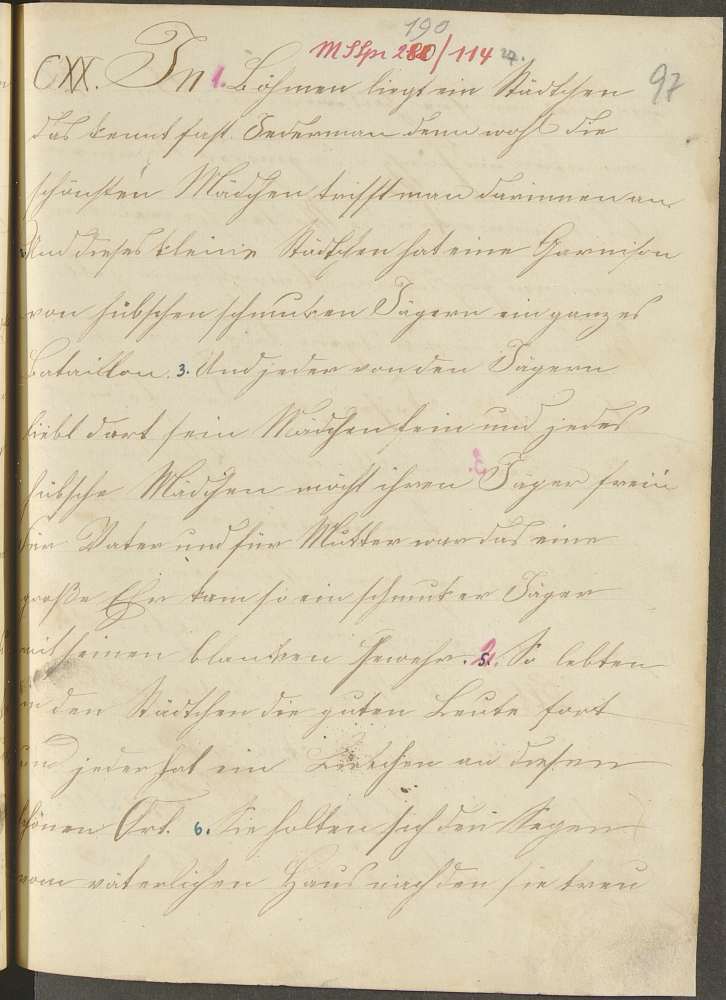 190
MSSpi 280/114 27.
CXX. In 1. Böhmen liegt ein Städtchen 97
das kennt fast Jederman denn wohl die
schönsten Mädchen trifft man darinnen an.
Und dieses kleine Städtchen hat eine Garnison
von hübschen schmuken Jägern ein ganzes
Bataillon. 3. Und jeder von den Jägern
liebt dort sein Mädchen fein und jedes
hübsche Mädchen möcht ihren Jäger frein
für Vater und für Mutter war das eine
große Ehr kam so ein schmuker Jäger
mit seinen blanken Gewehr. 5. So lebten
in den Städtchen die guten Leute fort
und jeder hat ein Liebchen an diesen
schönen Ort. 6. Sie holten sich den Segen
vom väterlichen Haus nach den sie treu